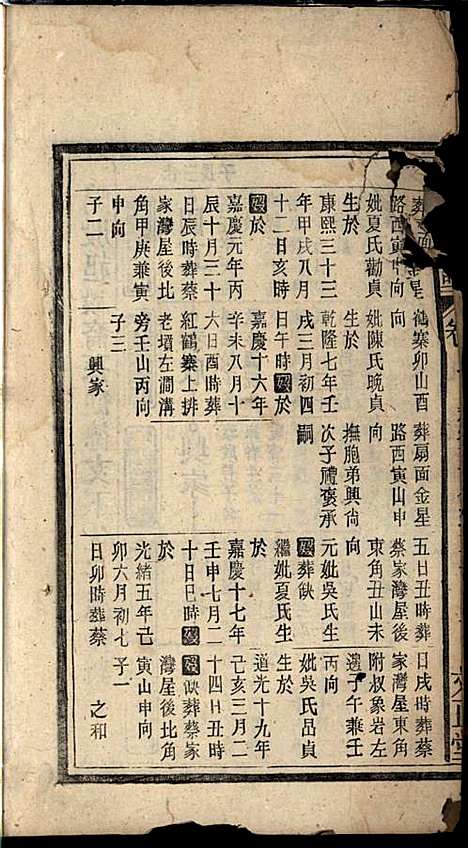 面金星
路西寅申向
妣夏氏勸貞
生於
康熙三十三
年甲戌八月
十二日亥時
殁於
嘉慶元年丙
辰十月三十
日辰時葬蔡
家灣屋後北
角甲庚兼寅
申向
子二
鶴寨卯山酉
向
妣陳氏晩貞
生於
乾隆七年壬
戌三月初四
日午時殁於
嘉慶十六年
辛未八月十
六日酉時葬
紅鶴寨上排
老墳左澗溝
旁壬山丙向
子三
興家
葬扇面金星
路西寅山申
向
撫胞弟興尙
次子禮褒承
嗣
五日丑時葬
蔡家灣屋後
東角丑山未
向
元妣吳氏生
殁葬缺
繼妣夏氏生
於
嘉慶十七年
壬申七月二
十日巳時殁
於
光緒五年己
卯六月初七
日卯時葬蔡
日戌時葬蔡
家灣屋東角
附叔象岩左
邊子午兼壬
丙向
妣吳氏品貞
生於
道光十九年
己亥三月二
十四日丑時
殁缺葬蔡家
灣屋後北角
寅山申向
子一
之和